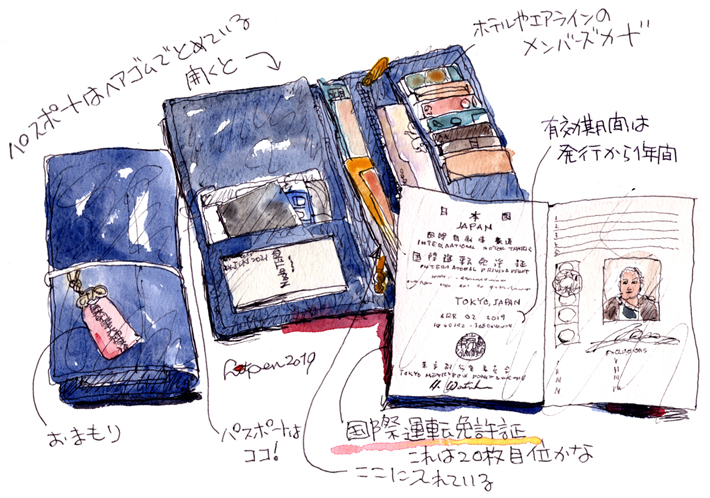 パスポートはヘアゴムでとめている
開くと
ホテルやエアラインの
メンバーズカード
有効期間は
発行から1年間
日本国
JAPAN
INTERNATIONAL MOTOR TRAFFIC
国際運転免許証
TOKYO, JAPAN
APR 02 2019
EXCLUSIONS
2019
おまもり
パスポートは
ココ!
国際運転免許証
これは20枚目位かな
ここに入れている